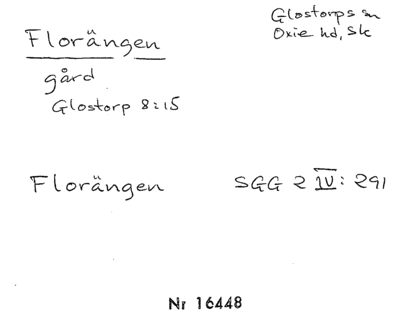 Florängen
Glostorps sn
Oxie hd, Sk
gård
Glostorp 8:15
Florängen SGG 2 IV: 291
Nr 16448